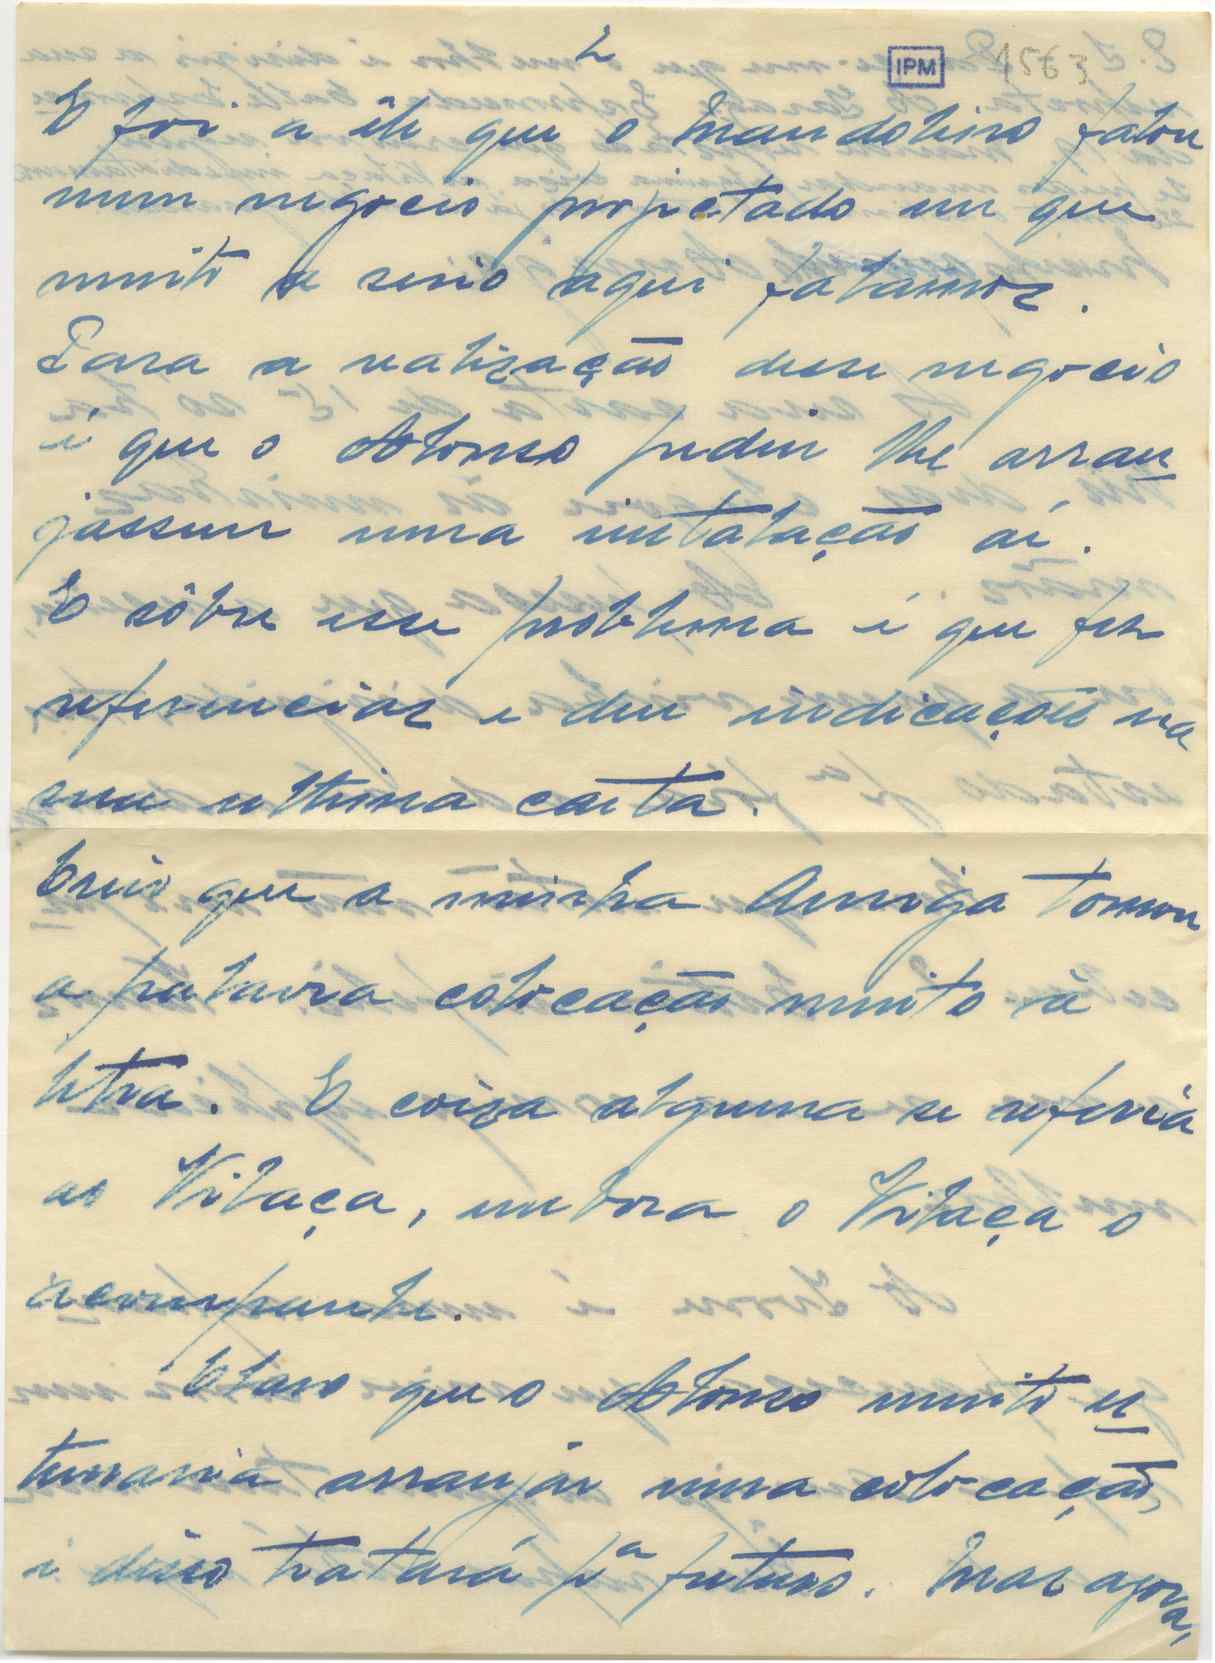 2
IPM 1563
E foi a êle que o Mandolino falou
num negocio projetado em que
muito a serio aqui falamos.
Para a realização desse negocio
é que o Afonso pediu lhe arran
jassem uma instalação aí.
E sôbre esse problema é que fez
referencias e deu indicações na
sua ultima carta.
Creio que a minha Amiga tomou
a palavra colocação muito à
letra. E coisa alguma se referia
ao Vilaça, embora o Vilaça o
acompanhe.
Claro que o Afonso muito es
timaria arranjar uma colocação,
e disso tratará pª futuro. Mas agora,